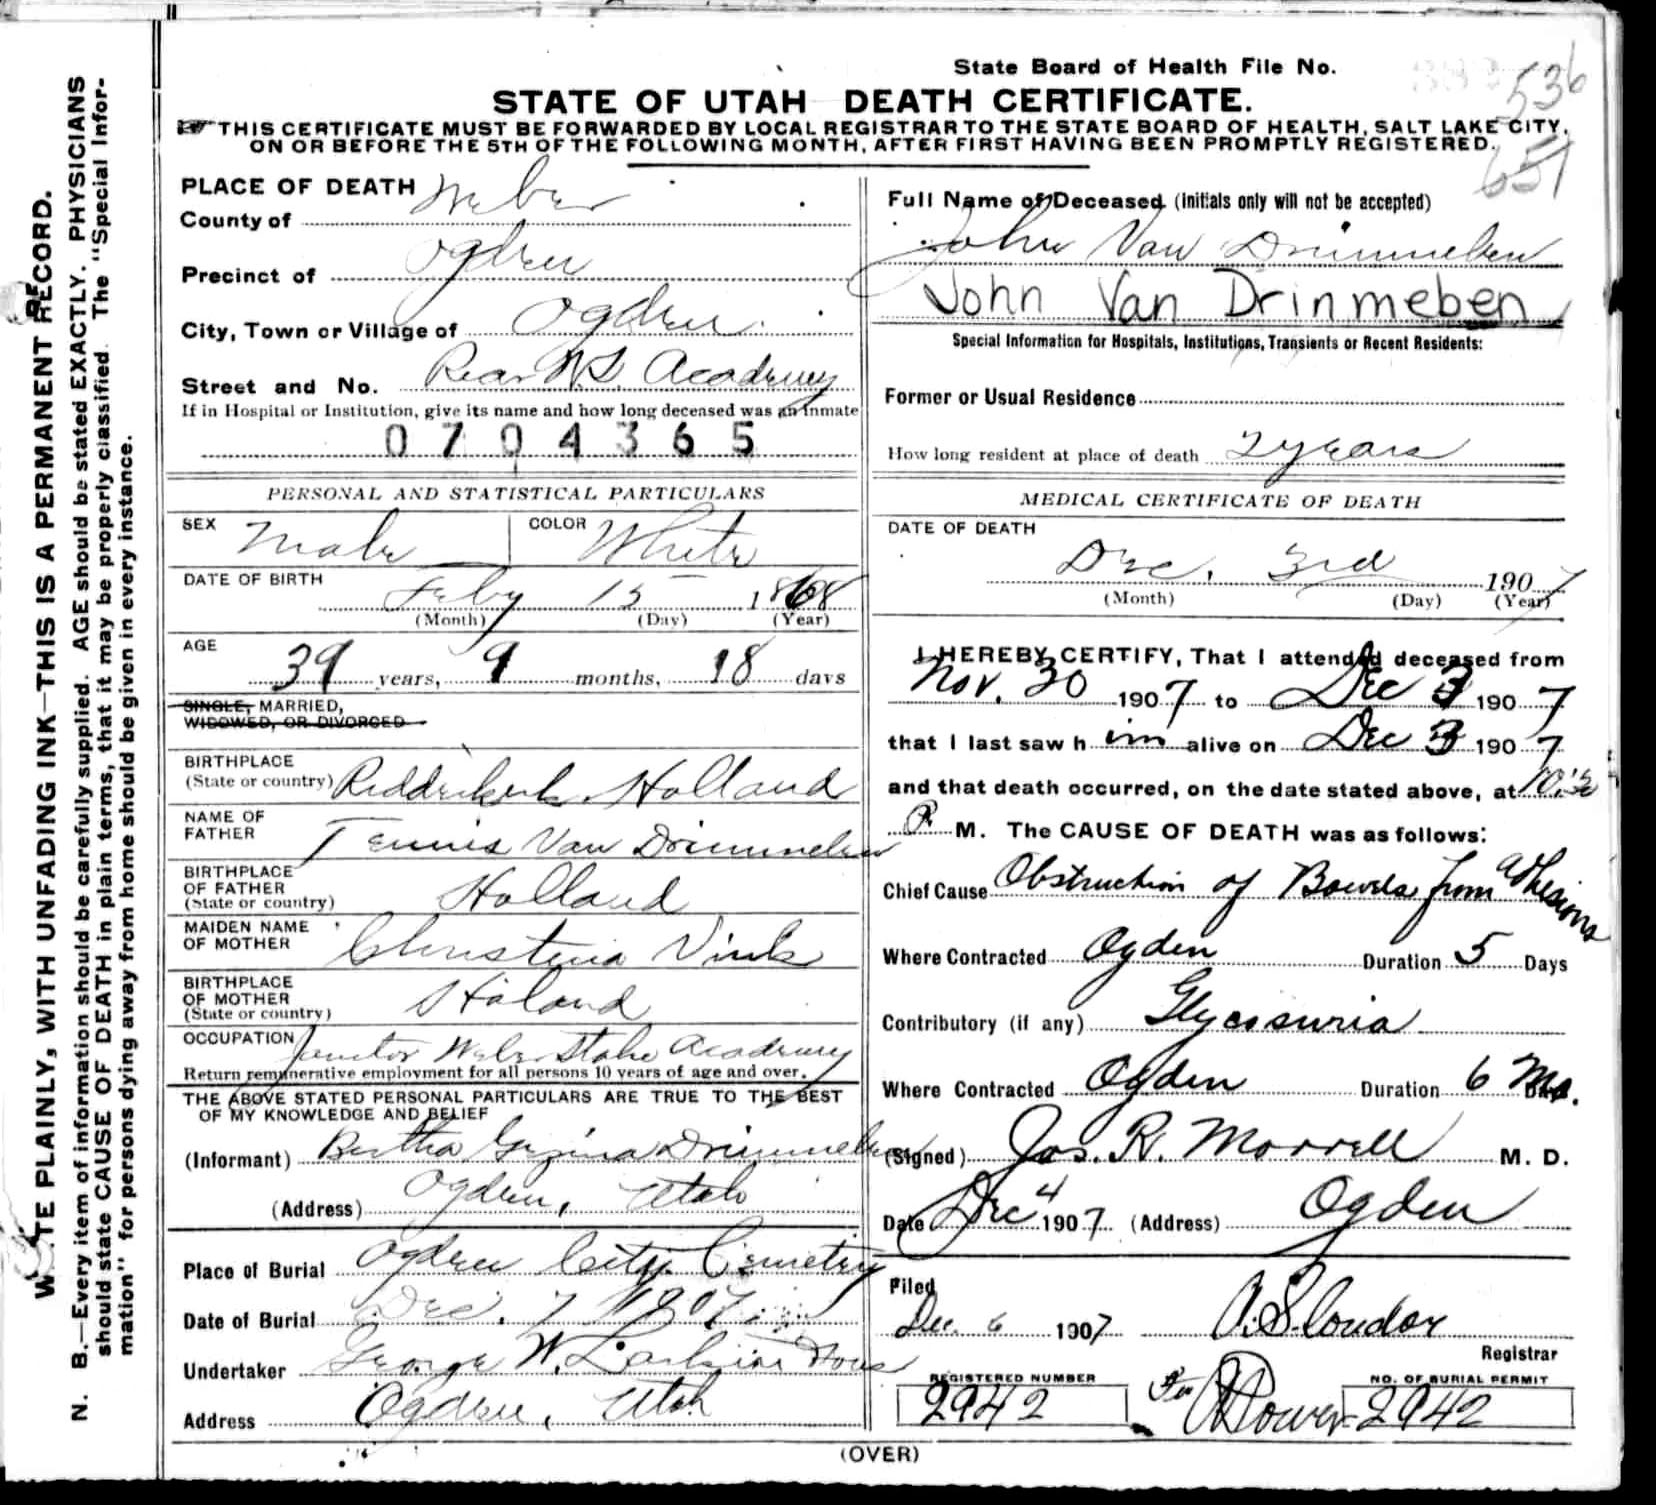 WRITE PLAINLY, WITH UNFADING INK—THIS IS A PERMANENT RECORD.
N. B.—Every item of information should be carefully supplied. AGE should be stated EXACTLY. PHYSICIANS
should state CAUSE OF DEATH in plain terms, that it may be properly classified. The "Special Infor-
mation" for persons dying away from home should be given in every instance.
State Board of Health File No.
536
651
STATE OF UTAH DEATH CERTIFICATE.
THIS CERTIFICATE MUST BE FORWARDED BY LOCAL REGISTRAR TO THE STATE BOARD OF HEALTH, SALT LAKE CITY,
ON OR BEFORE THE 5TH OF THE FOLLOWING MONTH, AFTER FIRST HAVING BEEN PROMPTLY REGISTERED.
PLACE OF DEATH
County of Weber
Precinct of Ogden
City, Town or Village of Ogden
Street and No. Rear W.S. Academy
If in Hospital or Institution, give its name and how long deceased was an inmate
0704365
PERSONAL AND STATISTICAL PARTICULARS
SEX Male COLOR White
DATE OF BIRTH Feby 15 1868
(Month) (Day) (Year)
AGE
39 years, 9 months, 18 days
SINGLE, MARRIED,
WIDOWED, OR DIVORCED
BIRTHPLACE
(State or country) Ridderkerk. Holland
NAME OF
FATHER Tennis Van Drimmelen
BIRTHPLACE
OF FATHER
(State or country) Holland
MAIDEN NAME
OF MOTHER Christena Vink
BIRTHPLACE
OF MOTHER
(State or country) Holand
OCCUPATION Janitor Weber Stake Academy
Return remunerative employment for all persons 10 years of age and over.
THE ABOVE STATED PERSONAL PARTICULARS ARE TRUE TO THE BEST
OF MY KNOWLEDGE AND BELIEF
(Informant) Bertha Gezina Drimmelen
(Address) Ogden, Utah
Place of Burial Ogden City Cemetery
Date of Burial Dec. 7 1907
Undertaker George W. Larkin
Address Ogden, Utah
Full Name of Deceased (Initials only will not be accepted)
John Van Drimmelen
John Van Drinmeben
Special Information for Hospitals, Institutions, Transients or Recent Residents:
Former or Usual Residence
How long resident at place of death 2 years
MEDICAL CERTIFICATE OF DEATH
DATE OF DEATH
Dec. 3rd 1907
(Month) (Day) (Year)
I HEREBY CERTIFY, That I attended deceased from
Nov. 30 1907 to Dec 3 1907
that I last saw him alive on Dec 3 1907
and that death occurred, on the date stated above, at
P. M. The CAUSE OF DEATH was as follows:
Chief Cause Obstruction of Bowels from Adhesions
Where Contracted Ogden Duration 5 Days
Contributory (if any) Glycosuria
Where Contracted Ogden Duration 6 Mo.
(Signed) Jas. R. Morrell M. D.
Date Dec 4 1907 (Address) Ogden
Filed
Dec. 6 1907 A. S. Condon
Registrar
REGISTERED NUMBER
2942
NO. OF BURIAL PERMIT
2942
(OVER)